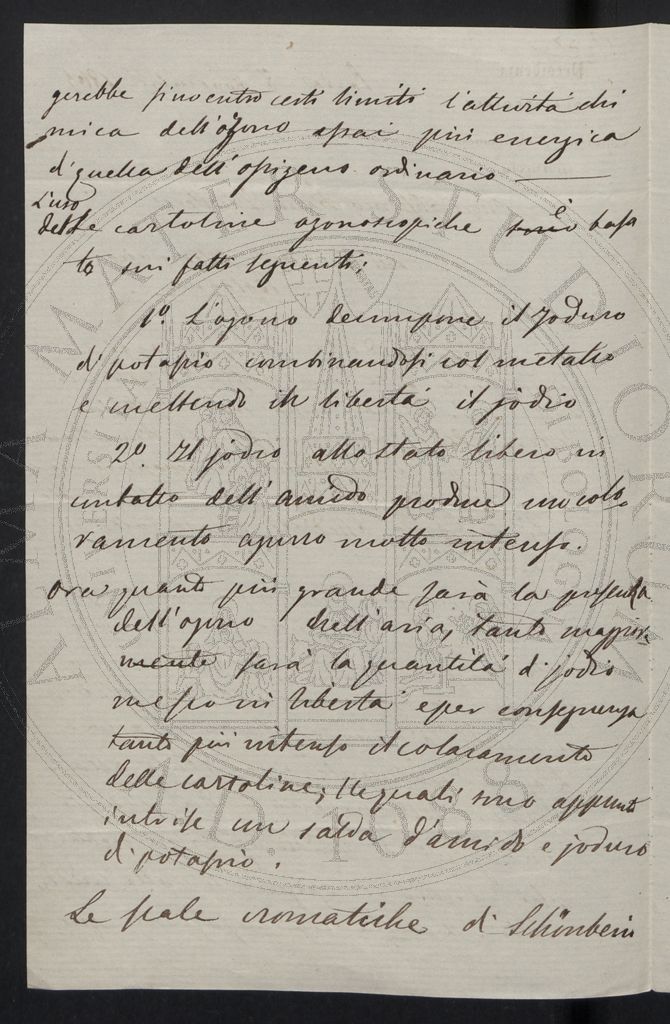 gerebbe fino entro certi limiti l'attività chi
mica dell'ozono assai più energica
di quella dell'ossigeno ordinario —
L'uso
delle cartoline ozonoscopiche è basa
to sui fatti seguenti:
1º. L'ozono decompone il Joduro
di potassio combinandosi col metallo
e mettendo in libertà il jodio
2º Il jodio allo stato libero in
contatto dell'amido produce un colo-
ramento azzurro molto intenso.
Ora quanto più grande sarà la presenza
dell'ozono nell'aria, tanto maggior-
mente sarà la quantità di jodio
messo in libertà e per conseguenza
tanto più intenso il coloramento
delle cartoline; le quali sono appunto
intrise in salda d'amido e joduro
di potassio.
Le scale cromatiche di Schönbein
ALMA MATER STUDIORUM
A.D. 1088